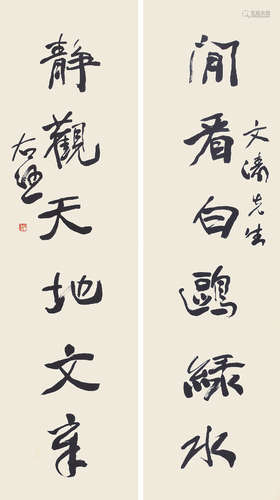 閒看白鷗綠水
文濤先生
静觀天地文章